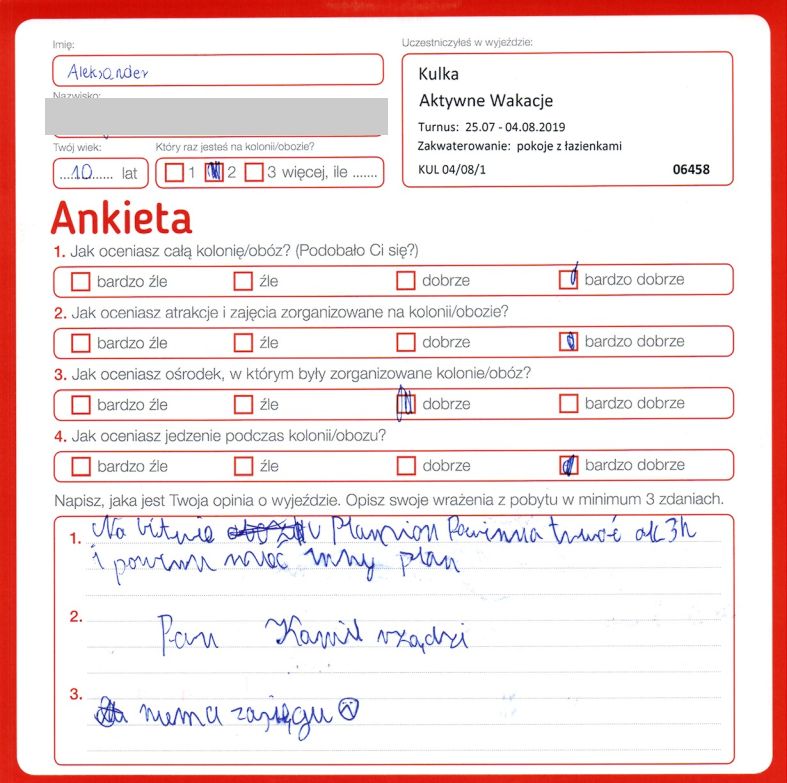 Imię:
Aleksander
Uczestniczyłeś w wyjeździe:
Kulka
Aktywne Wakacje
Turnus: 25.07 - 04.08.2019
Zakwaterowanie: pokoje z łazienkami
KUL 04/08/1 06458
Nazwisko:
Twój wiek:
Który raz jesteś na kolonii/obozie?
....10...... lat
1 2 3 więcej, ile .......
Ankieta
1. Jak oceniasz całą kolonię/obóz? (Podobało Ci się?)
bardzo źle źle dobrze bardzo dobrze
2. Jak oceniasz atrakcje i zajęcia zorganizowane na kolonii/obozie?
bardzo źle źle dobrze bardzo dobrze
3. Jak oceniasz ośrodek, w którym były zorganizowane kolonie/obóz?
bardzo źle źle dobrze bardzo dobrze
4. Jak oceniasz jedzenie podczas kolonii/obozu?
bardzo źle źle dobrze bardzo dobrze
Napisz, jaka jest Twoja opinia o wyjeździe. Opisz swoje wrażenia z pobytu w minimum 3 zdaniach.
1. Na bitwie Powinna trwać ok 3h
i mieć inny plan
2. Pan Kamil rządzi
3. niema zasięgu